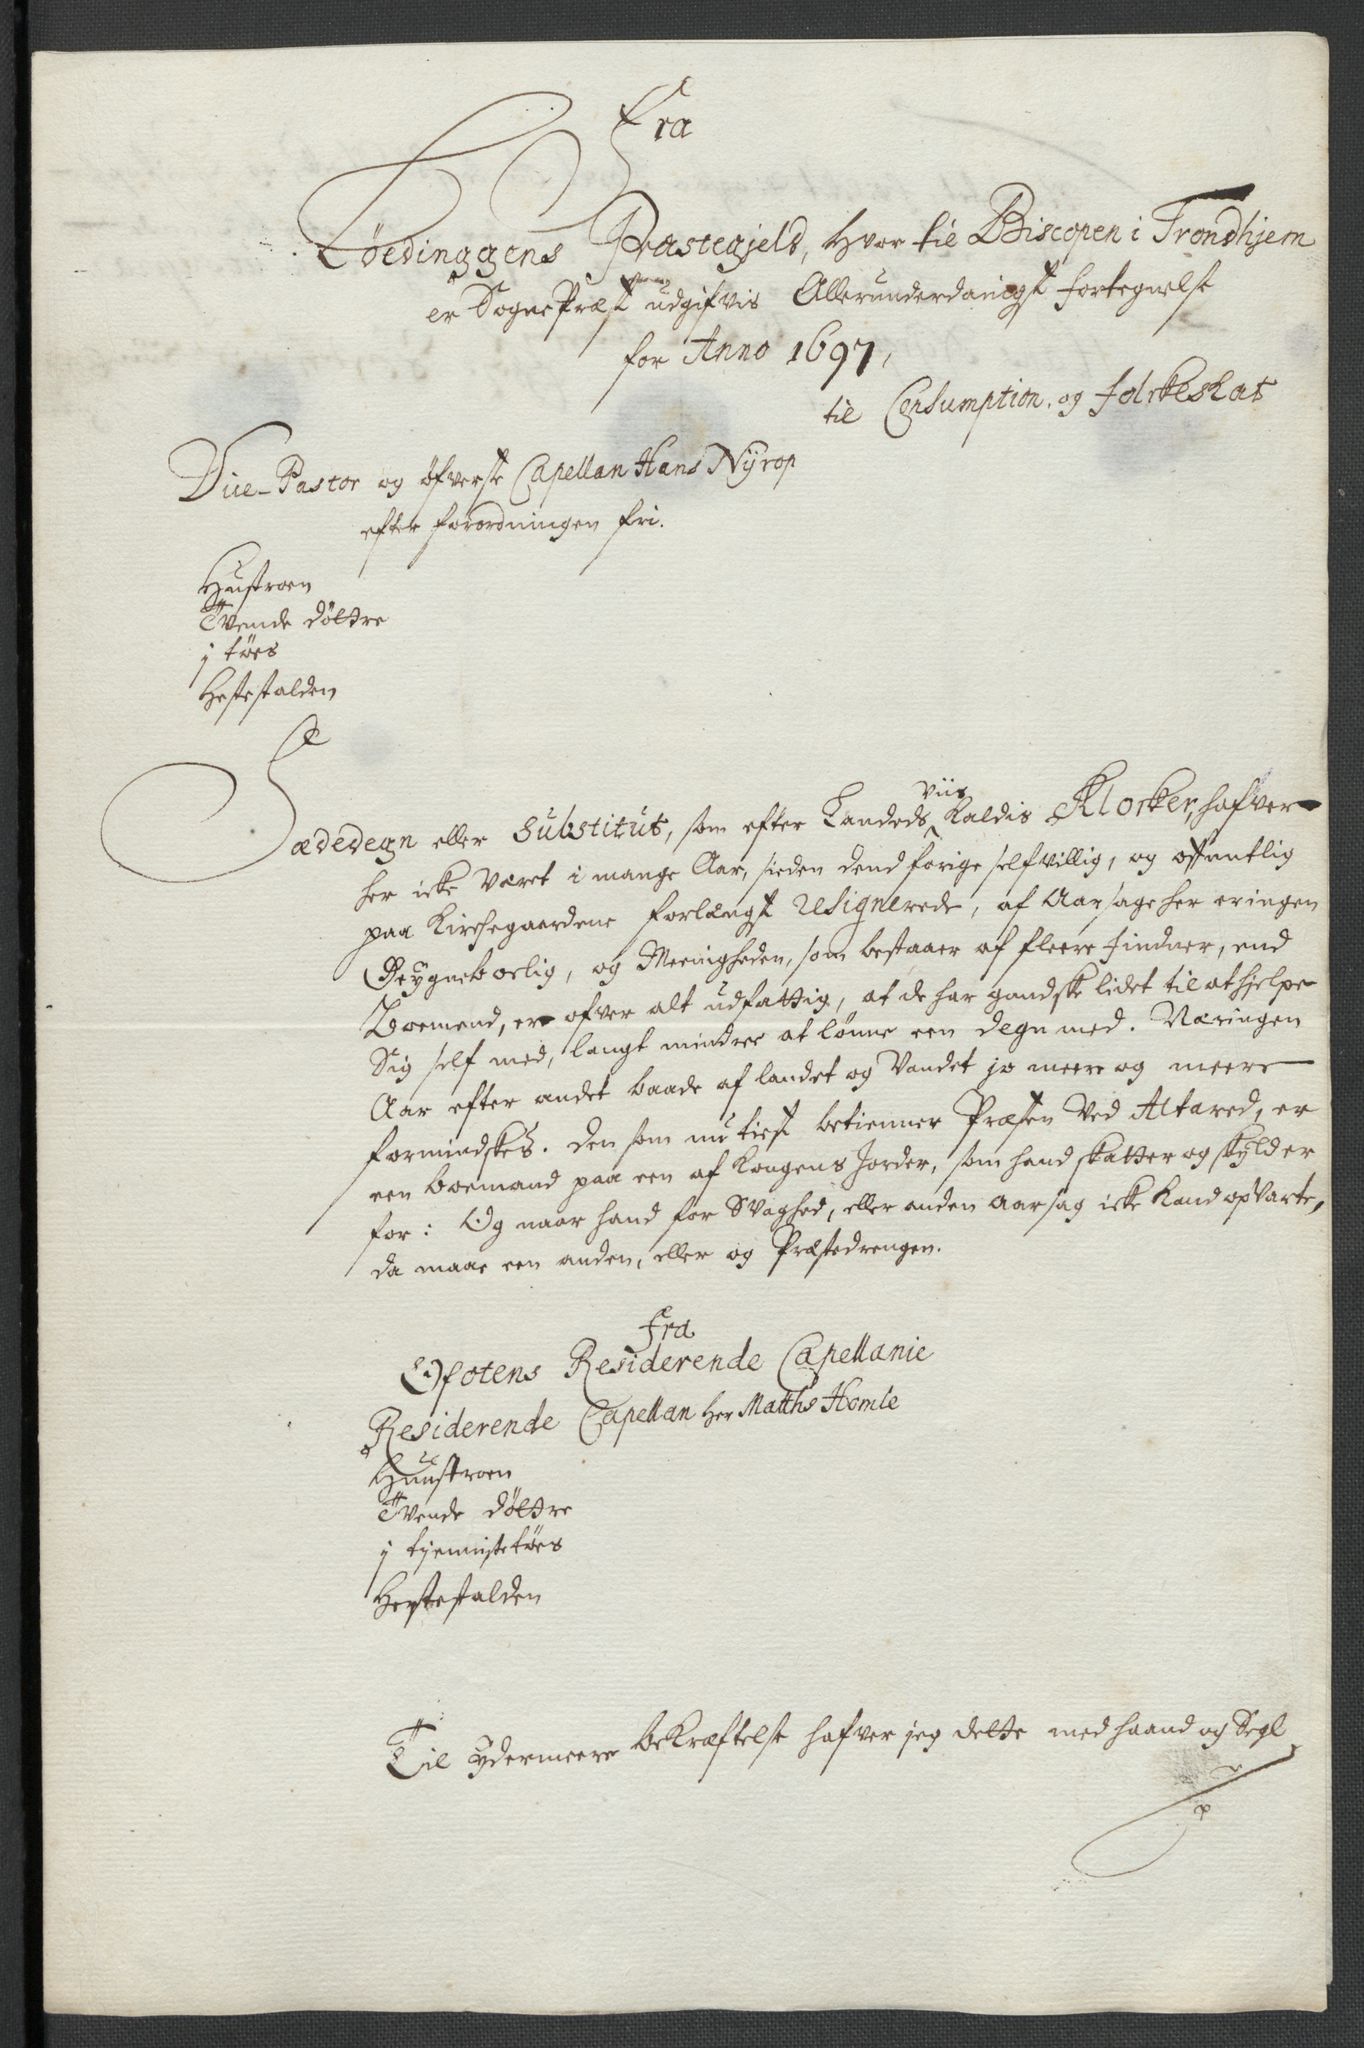 Fra
Löedinggens Præstegjeld, hvor til Biscopen i Trondhjem
er SognePræst udgifvis Allerunderdanigst fortegnelse
for Anno 1697,
til Consumption. og Folckeskat
Vice-Pastor og öfverste Capellan Hans Nyrop
efter forordningen fri.
Hustroen
Tvende döttre
j töes
Hestestalden
Sædedegn eller Substitut, som efter Landeds viis Kaldis Klocker, hafver
her icke været i mange Aar, sieden dend forige self villig, og offentlig
paa Kirchegaardene forlængst resignerede, af Aarsage her er ingen
Degnebolig, og Meenigheden, som bestaaer af fleere Finder, end
Boemend, er ofver alt udfattig, at de har gandske lidet til at hjelpe
Sig self med, langt mindre at lönne een degn med. Næringen
Aar efter andet baade af landet og Vandet jo meere og meere
formindskes. Den som nu tiest betienner Præsten Ved Altared, er
een boemand paa een af Kongens Jorder, som hand skatter og skylder
for: Og naar hand for Svaghed, eller anden Aarsag icke Kand opvarte,
da maae een anden, eller og Præstedrengen.
Fra
Ofotens Residerende Capellanie
Residerende Capellan her Matths Homle
Huustroen
Tvende döttre
j tjennistetöes
Hestestalden
Til ydermeere bekræftelse hafver jeg dette med haand og Segl